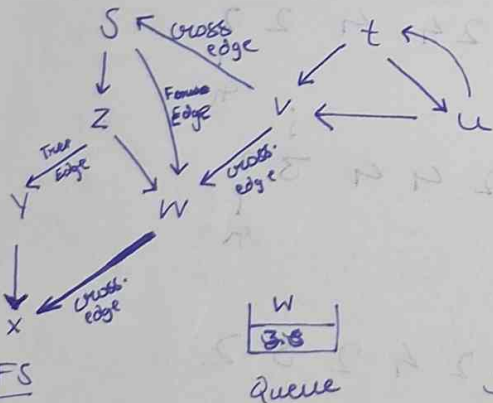 S
cross edge
t
Z
Forwa Edge
V
u
Tree Edge
cross. edge
Y
W
cross. edge
X
W
FS
Queue